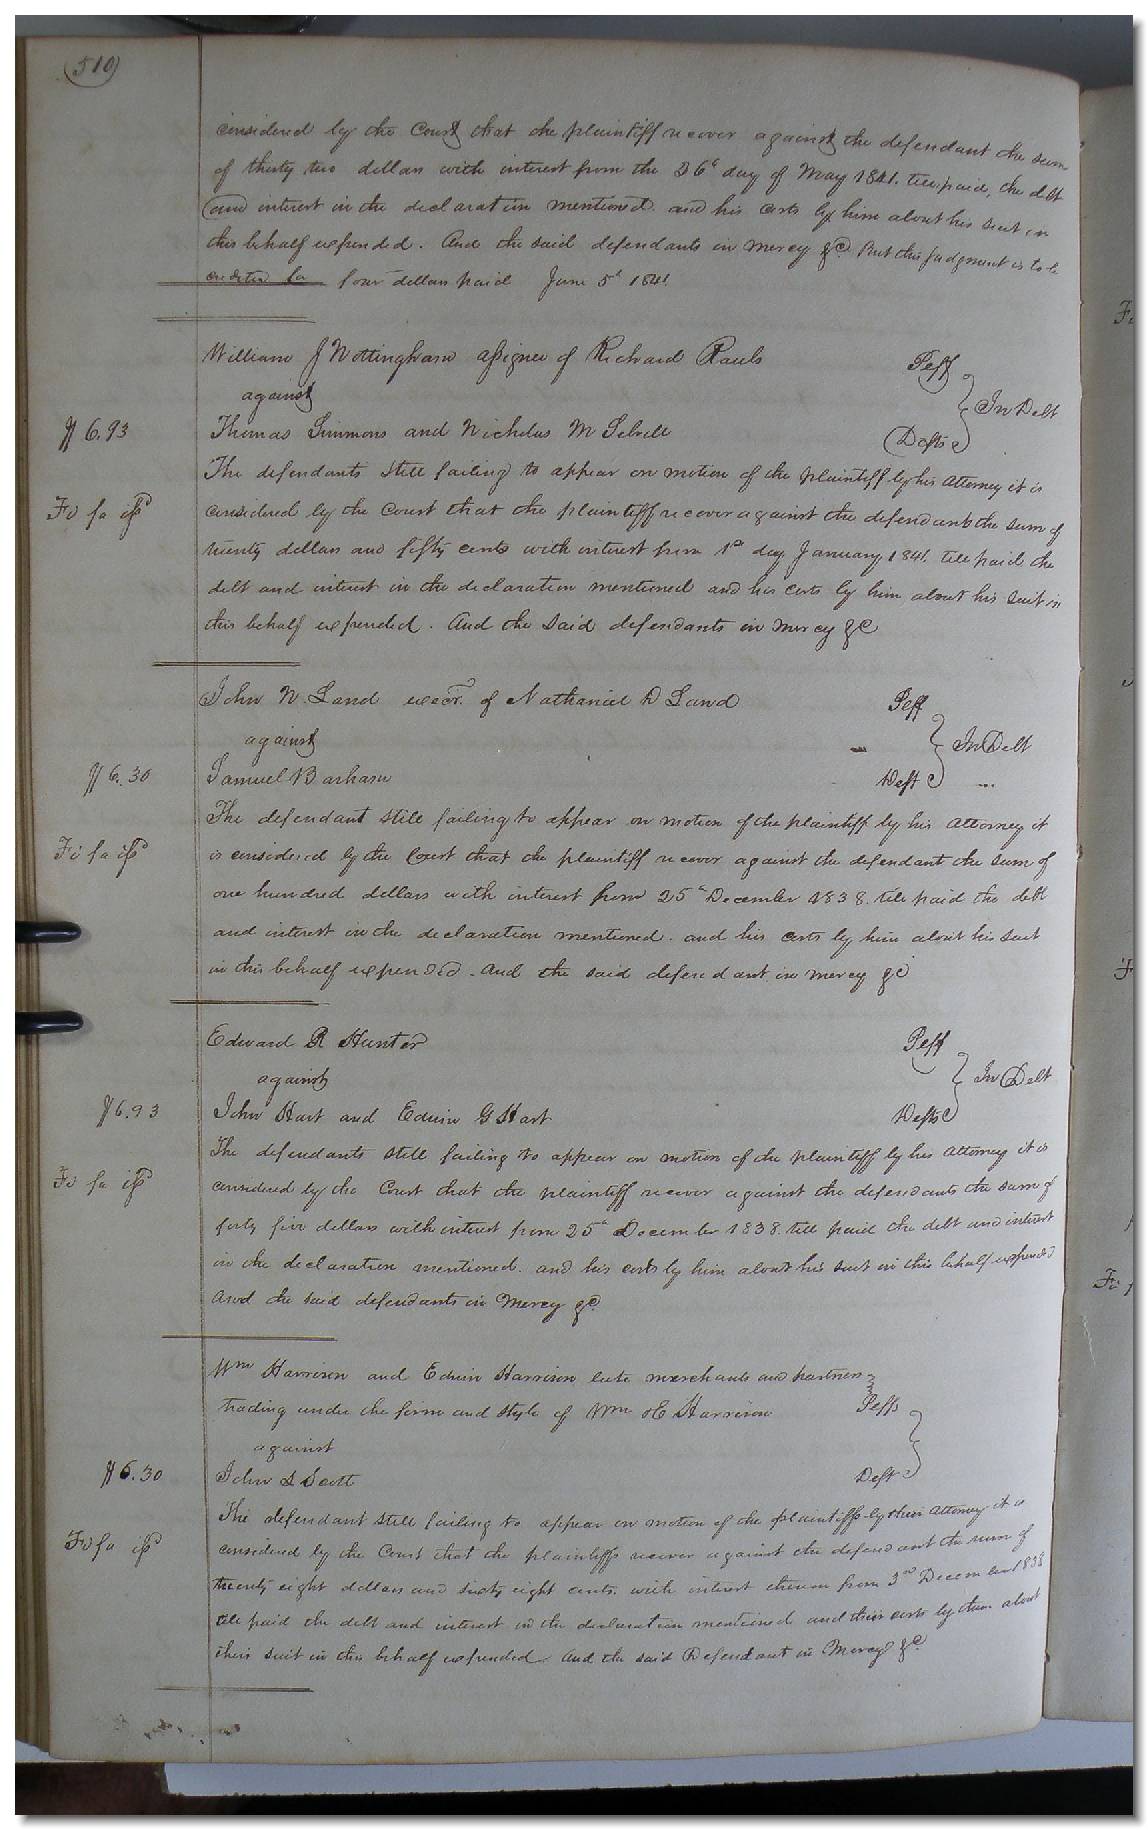 510
considered by the Court that the plaintiff recover against the defendant the sum
of thirty two dollars with interest from the 26th day of May 1841. till paid, the debt
and interest in the declaration mentioned. and his costs by him about his suit in
this behalf expended. And the said defendants in mercy &c. But this judgment is to be
credited for four dollars paid June 5th 1841
William J Nottingham assignee of Richard Rawls Plff
against In Debt
$6.93 Thomas Simmons and Nicholas M Sebrell Defts
The defendants still failing to appear on motion of the plaintiff by his attorney it is
Fi fa issd considered by the Court that the plaintiff recover against the defendants the sum of
twenty dollars and fifty cents with interest from 1st day January 1841. till paid the
debt and interest in the declaration mentioned and his costs by him about his suit in
this behalf expended. And the said defendants in mercy &c
John N. Land execr. of Nathaniel D Land Plff
against In Debt
$6.30 Samuel Barham Deft
The defendant still failing to appear on motion of the plaintiff by his attorney it
Fi fa issd is considered by the Court that the plaintiff recover against the defendant the sum of
one hundred dollars with interest from 25th December 1838. till paid the debt
and interest in the declaration mentioned. and his costs by him about his suit
in this behalf expended. And the said defendant in mercy &c
Edward R Hunter Plff
against In Debt
$6.93 John Hart and Edwin G Hart Defts
The defendants still failing to appear on motion of the plaintiff by his attorney it is
Fi fa issd considered by the Court that the plaintiff recover against the defendants the sum of
forty five dollars with interest from 25th December 1838. till paid the debt and interest
in the declaration mentioned. and his costs by him about his suit in this behalf expended
And the said defendants in mercy &c.
Wm Harrison and Edwin Harrison late merchants and partners
trading under the firm and style of Wm & E Harrison Plffs
against
$6.30 John L Scott Deft
The defendant still failing to appear on motion of the plaintiffs by their attorney it is
Fi fa issd considered by the Court that the plaintiffs recover against the defendant the sum of
twenty eight dollars and sixty eight cents. with interest thereon from 3rd December 1838
till paid the debt and interest in the declaration mentioned and their costs by them about
their suit in this behalf expended. And the said Defendant in Mercy &c.
Fi
Fi f